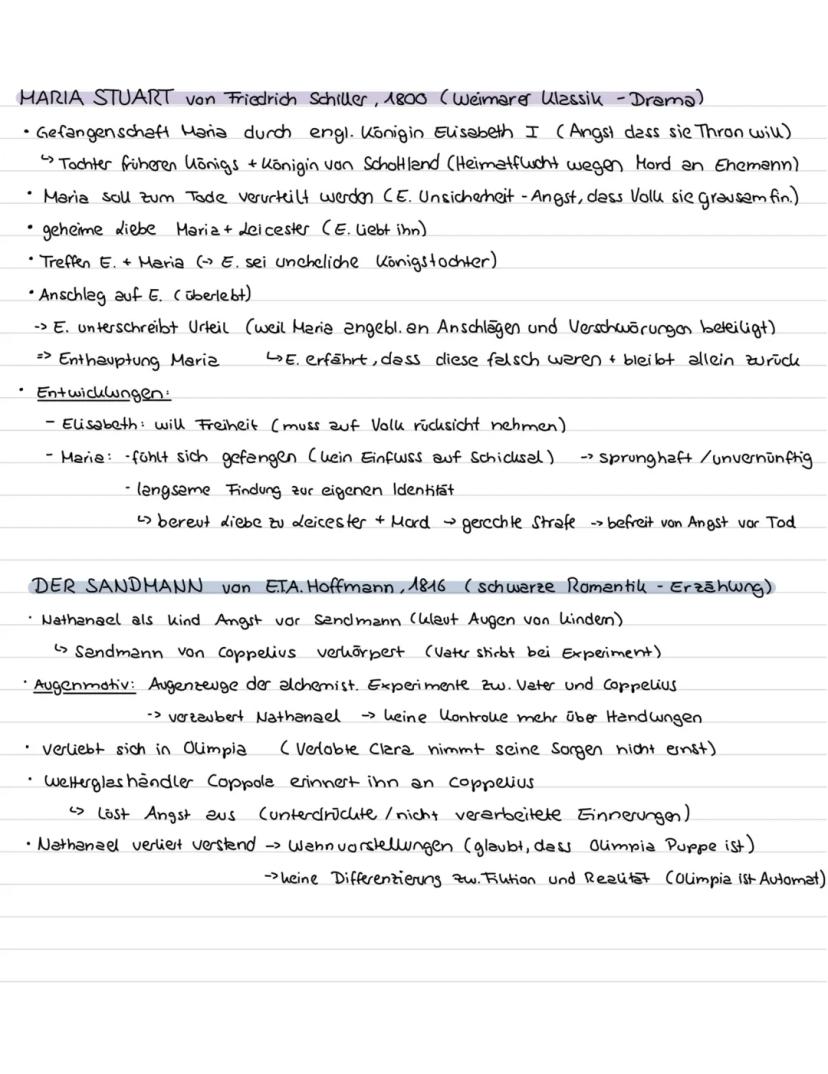 MARIA STUART von Friedrich Schiller, 1800 (Weimarer Klassik - Drama)
• Gefangenschaft Maria durch engl. Königin Elisabeth I (Angst dass sie Thron will)
↳ Tochter früheren Königs + Königin von Schottland (Heimatflucht wegen Mord an Ehemann)
• Maria soll zum Tode verurteilt werden (E. Unsicherheit - Angst, dass Volk sie grausam fin.)
• geheime Liebe Maria + Leicester (E. liebt ihn)
• Treffen E. + Maria (→ E. sei uneheliche Königstochter)
• Anschlag auf E. (überlebt)
-> E. unterschreibt Urteil (weil Maria angebl. an Anschlägen und Verschwörungen beteiligt)
=> Enthauptung Maria ↳ E. erfährt, dass diese falsch waren + bleibt allein zurück
• Entwicklungen:
- Elisabeth: will Freiheit (muss auf Volk rücksicht nehmen)
- Maria: -fühlt sich gefangen (kein Einfluss auf Schicksal) -> sprunghaft / unvernünftig
- langsame Findung zur eigenen Identität
↳ bereut Liebe zu Leicester + Mord → gerechte Strafe -> befreit von Angst vor Tod
DER SANDMANN von E.T.A. Hoffmann, 1816 (schwarze Romantik - Erzählung)
• Nathanael als kind Angst vor Sandmann (klaut Augen von Kindern)
↳ Sandmann von Coppelius verkörpert (Vater stirbt bei Experiment)
• Augenmotiv: Augenzeuge der alchemist. Experimente zw. Vater und Coppelius
-> verzaubert Nathanael -> keine Kontrolle mehr über Handlungen
• verliebt sich in Olimpia (Verlobte Clara nimmt seine Sorgen nicht ernst)
• Wetterglashändler Coppola erinnert ihn an Coppelius
↳ löst Angst aus (unterdrückte / nicht verarbeitete Erinnerungen)
• Nathanael verliert verstand -> Wahnvorstellungen (glaubt, dass Olimpia Puppe ist)
-> keine Differenzierung zw. Fiktion und Realität (Olimpia ist Automat)